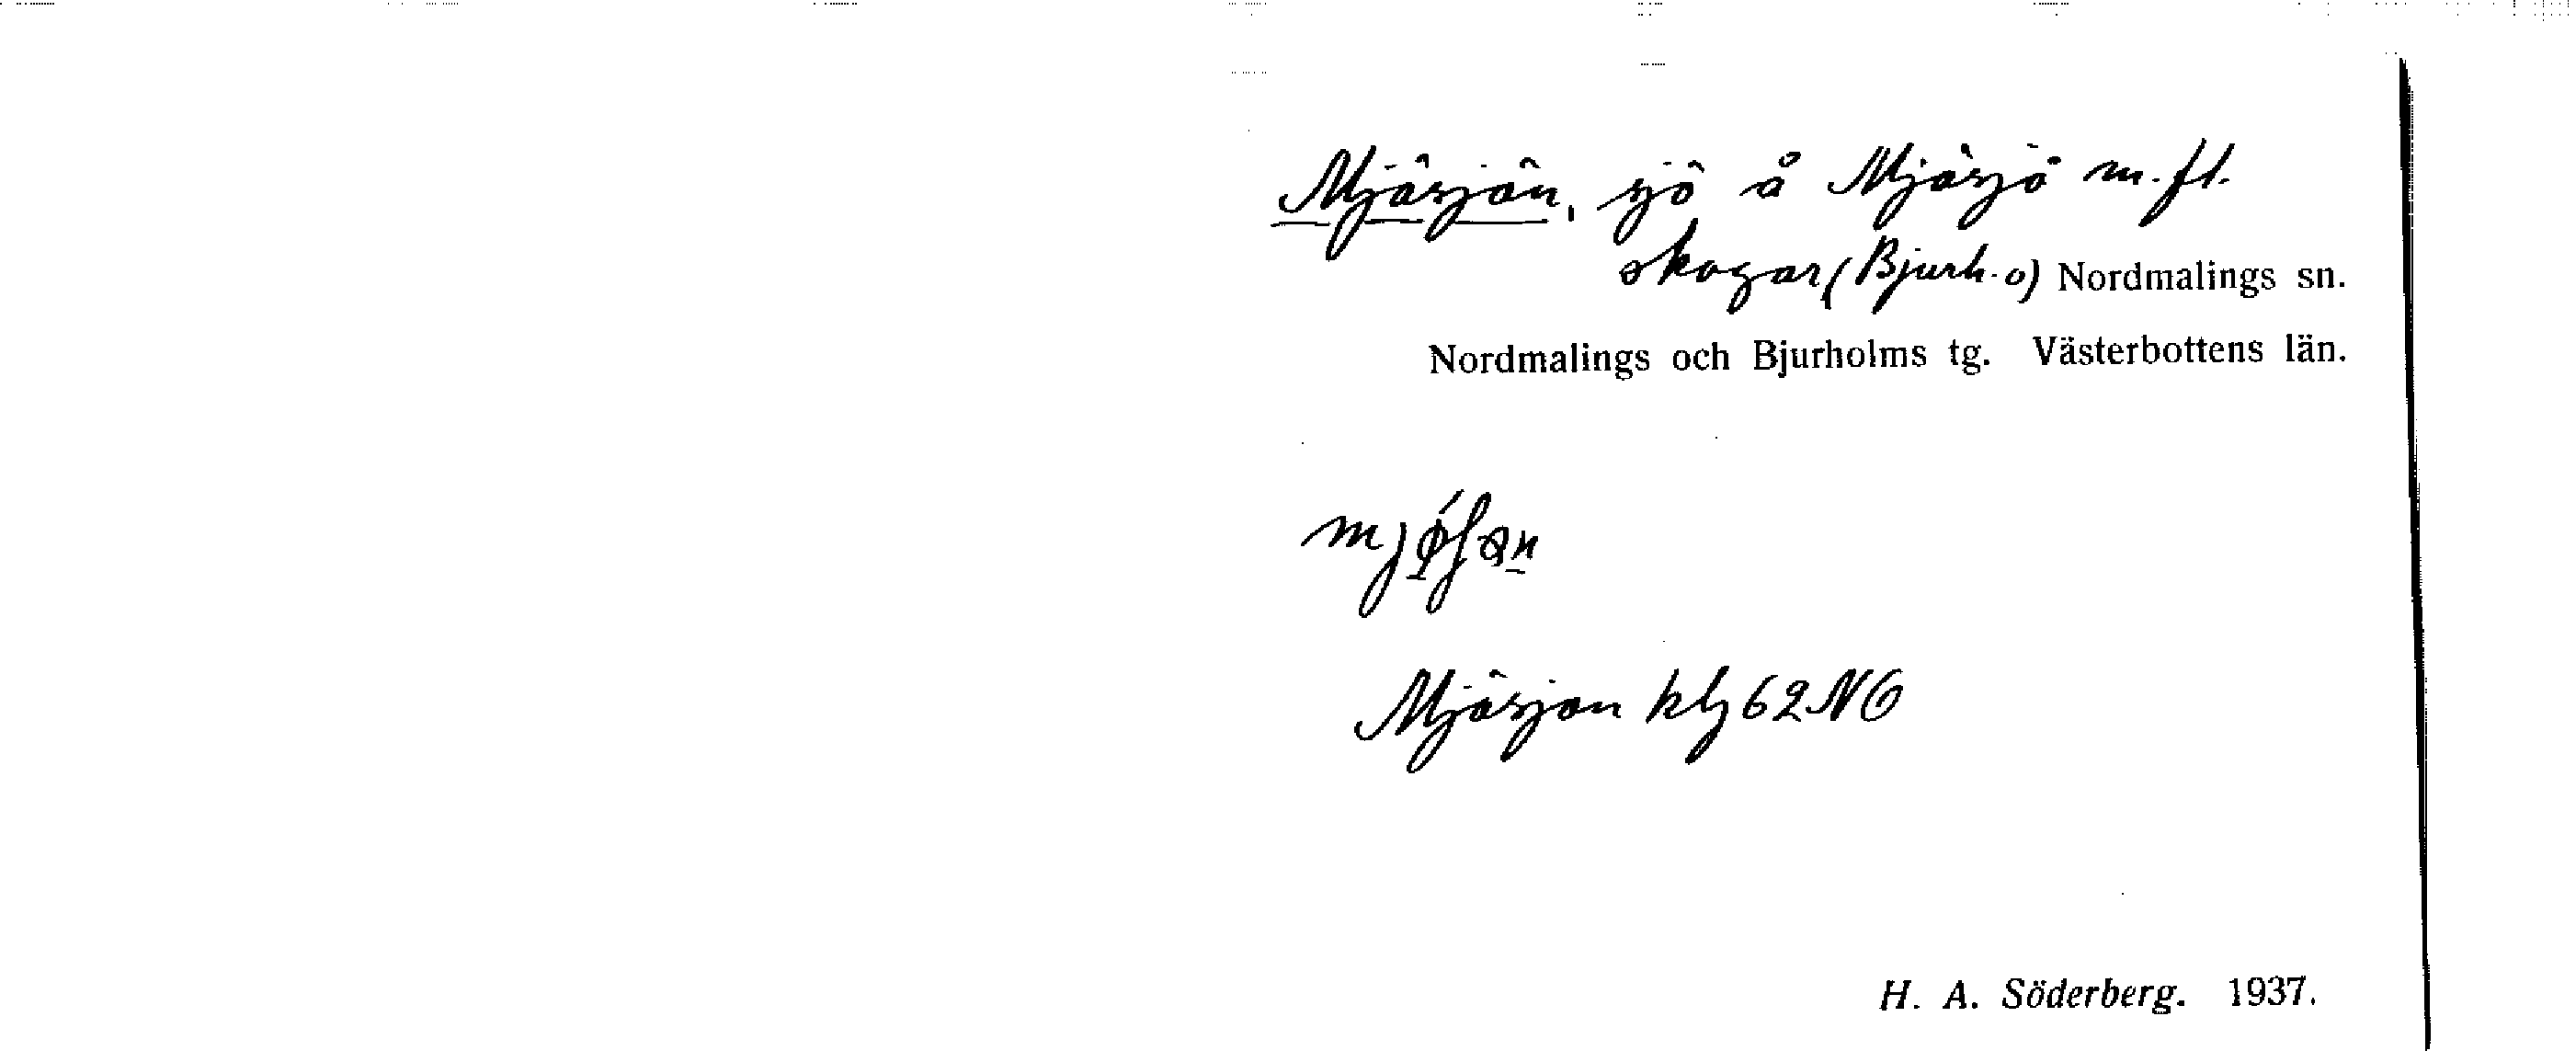 Mjösjön, sjö å Mjösjö m. fl.
skogar (Bjurh. o) Nordmalings sn.
Nordmalings och Bjurholms tg. Västerbottens län.
Mjösjön kbl 62 NO
H. A. Söderberg. 1937.